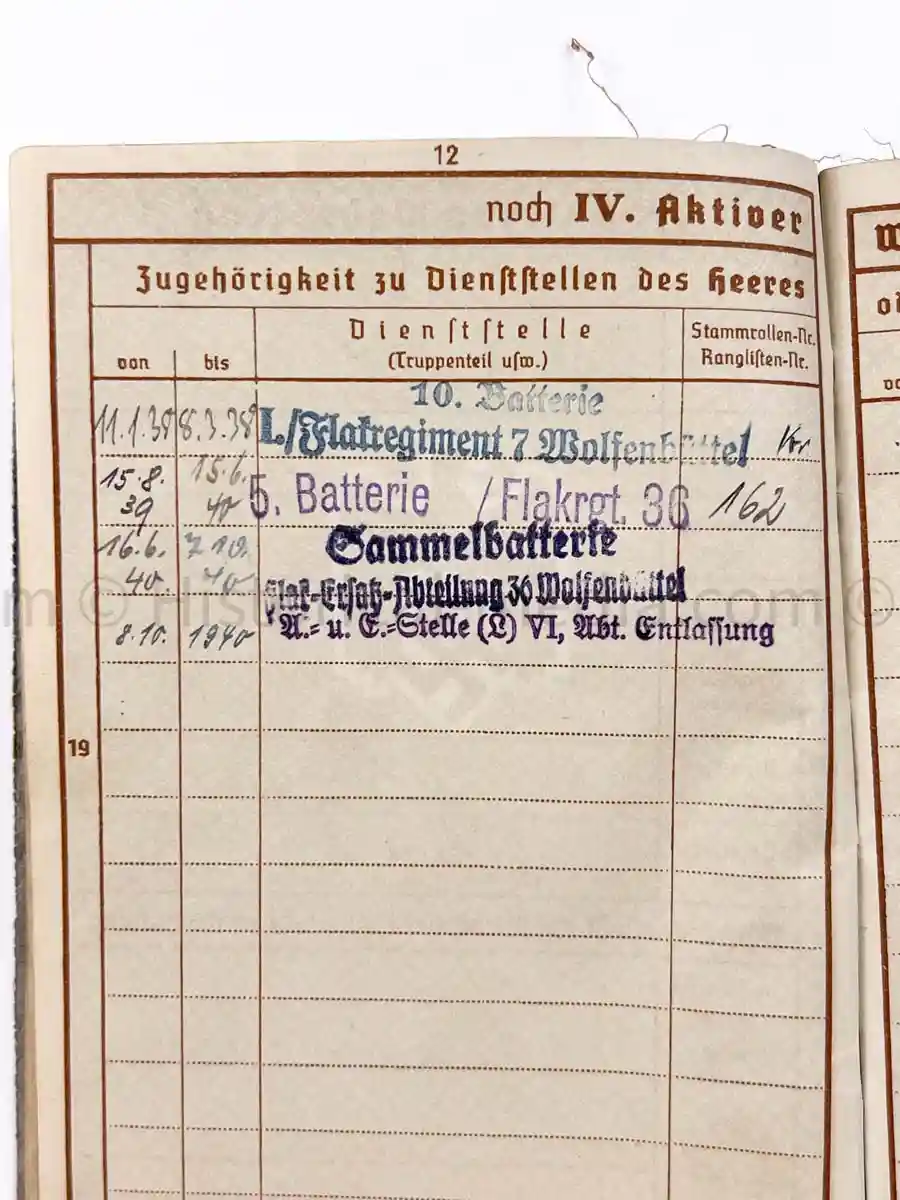 12
noch IV. Aktiver
Zugehörigkeit zu Dienststellen des Heeres
von
bis
Dienststelle
(Truppenteil usw.)
Stammrollen-Nr.
Ranglisten-Nr.
10. Batterie
11.1.38 8.3.38 I./Flakregiment 7 Wolfenbüttel
15.8. 39 15.6. 40 5. Batterie / Flakrgt. 36 162
16.6. 40 7.10. 40 Sammelbatterie
Flak-Ersatz-Abteilung 36 Wolfenbüttel
8.10. 1940 A.= u. E.=Stelle (L) VI, Abt. Entlassung
19